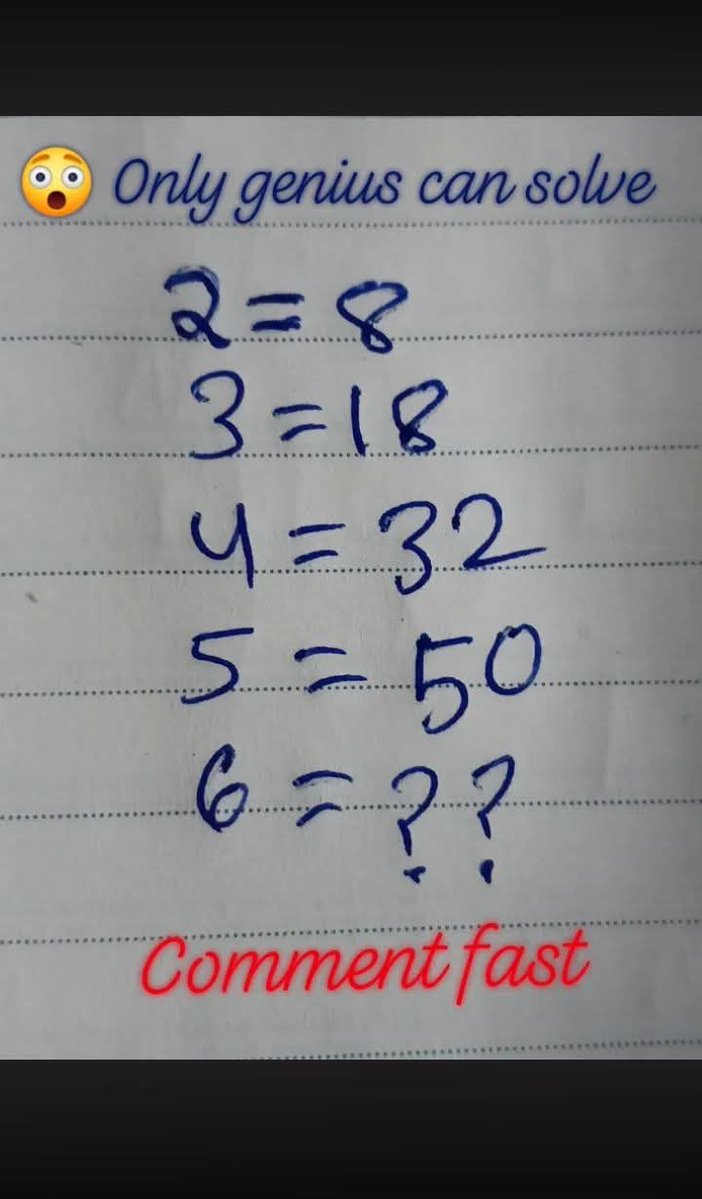 😲 Only genius can solve
2 = 8
3 = 18
4 = 32
5 = 50
6 = ??
Comment fast